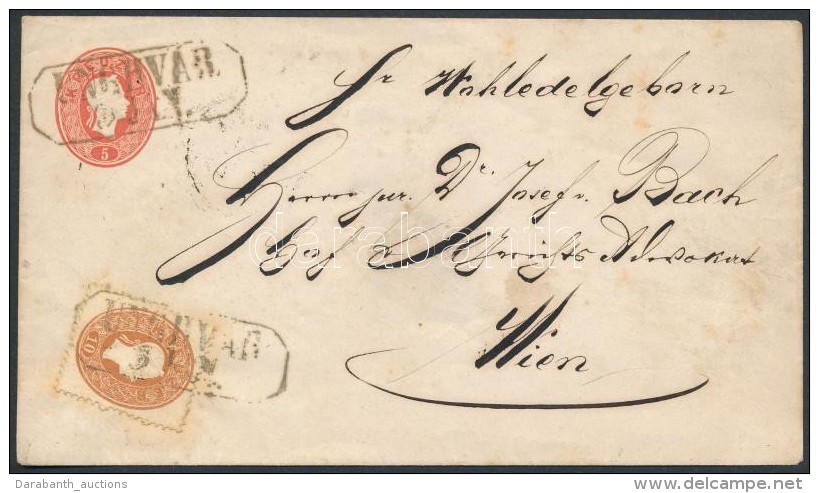 5
Sr Wohledelgeborn
Herrn jur. Dr. Josef v. Bach
Hof & Gerichts Advokat
darabanth
Wien
10
Darabanth_auctions
www.delcampe.net